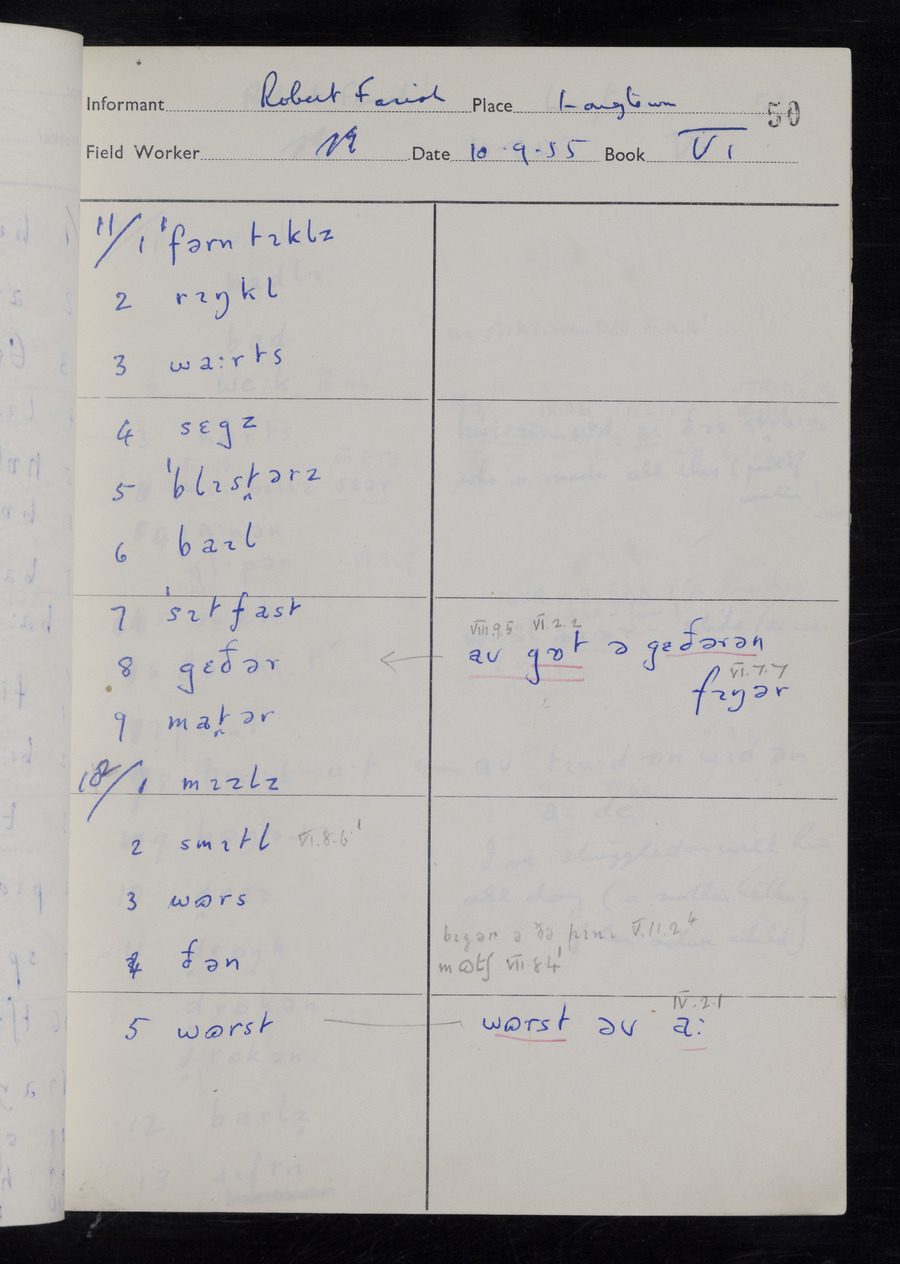 Informant Robert Farish Place Longtown 50
Field Worker Date 10.9.55 Book VI
11/1 ˈfərntɪklz
2 rɪŋkl
3 wa:rts
4 sɛgz
5 ˈblɪst̪ərz
6 baɪl
7 ˈsɪtfast
8 gɛðər
VIII.9.5 VI.2.2
av gɒt ə gɛðərən
VI.7.7
fɪŋər
9 mat̪ər
12/1 mɪzlz
2 smɪtl VI.8.6
3 wɒrs
bɪgər ə ðə V.11.2
4 ðən
mɒtʃ VII.8.4
5 wɒrst
IV.2.1
wɒrst əv a: